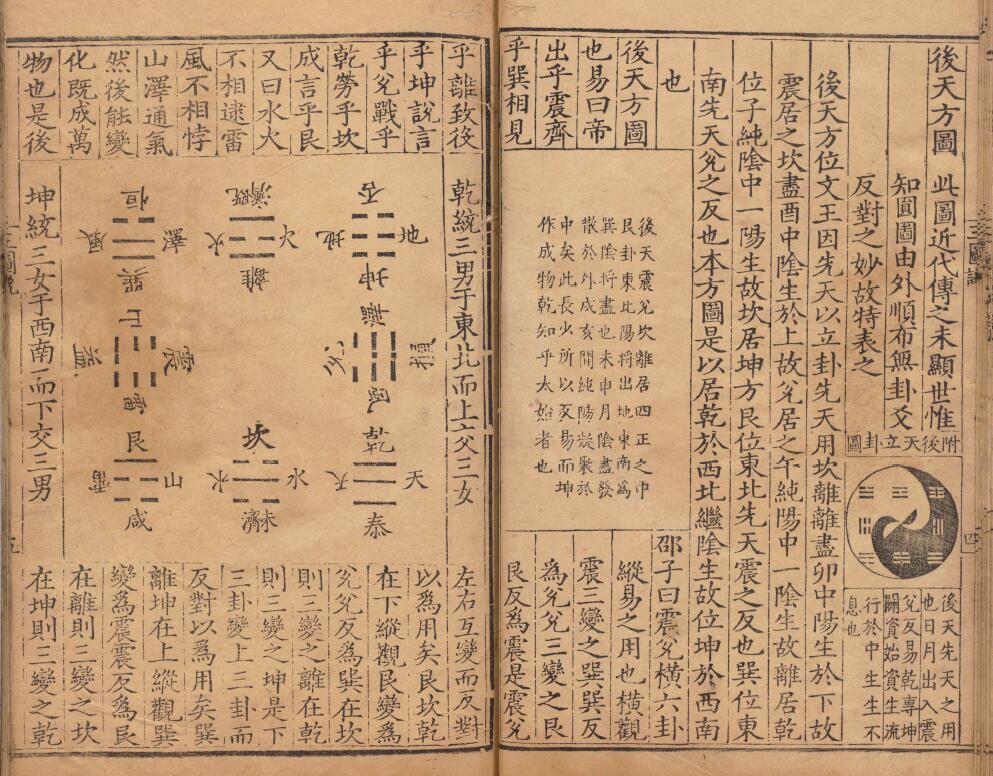 後天方圖
此圖近代傳之未顯世惟
知圓圖由外順布無卦爻
反對之妙故特表之
附後天立卦圖
後天先天之用
也日月出入震
兌反易乾專坤
闢資始資生流
行於中生生不
息也
後天方位文王因先天以立卦先天用坎離離盡卯中陽生於下故
震居之坎盡酉中陰生於上故兌居之午純陽中一陰生故離居乾
位子純陰中一陽生故坎居坤方艮位東北先天震之反也巽位東
南先天兌之反也本方圖是以居乾於西北繼陰生故位坤於西南
也
後天方圖
也易曰帝
出乎震齊
乎巽相見
後天震兌坎離居四正之中
艮卦東北陽將出地東南為
巽陰將盡也未申月陰盡發
散於外戌亥間純陽凝聚於
中矣此長少所以反易而坤
作成物乾知乎太始者也
邵子曰震兌橫六卦
縱易之用也橫觀
震三變之巽巽反
為兌兌三變之艮
艮反為震是震兌
乎離致役
乎坤說言
乎兌戰乎
乾勞乎坎
成言乎艮
又曰水火
不相逮雷
風不相悖
山澤通氣
然後能變
化既成萬
物也是後
乾統三男于東北而上交三女
否
地
坤
兌
風
乾
天
天
泰
既濟
火
火
離
坎
水
水
未濟
恒
澤
風
巽
震
益
雷
艮
山
咸
坤統三女于西南而下交三男
左右互變而反對
以為用矣艮坎乾
在下縱觀艮變為
兌兌反為巽在坎
則三變之離在乾
則三變之坤是下
三卦變上三卦而
反對以為用矣巽
離坤在上縱觀巽
變為震震反為艮
在離則三變之坎
在坤則三變之乾